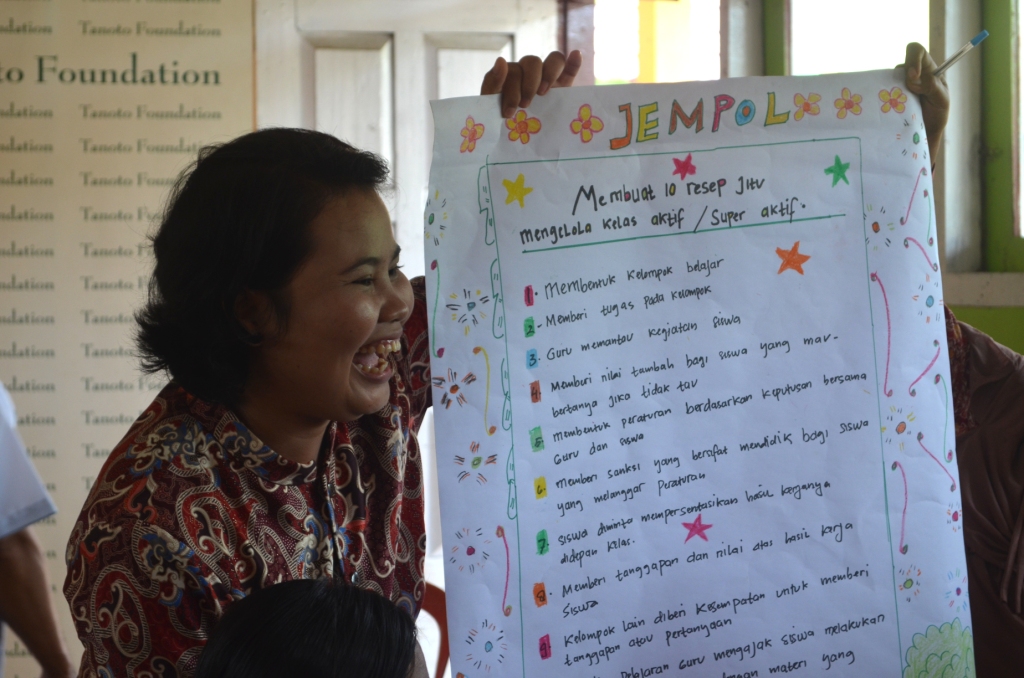 Tanoto Foundation
Tanoto Foundation
to Foundation
JEMPOL
Membuat 10 resep Jitu
mengelola kelas aktif / Super aktif.
1. Membentuk kelompok belajar
2. Memberi tugas pada kelompok
3. Guru memantau kegiatan siswa
4. Memberi nilai tambah bagi siswa yang mau
bertanya jika tidak tau
5. Membentuk peraturan berdasarkan keputusan bersama
Guru dan siswa
6. Memberi sanksi yang bersifat mendidik bagi siswa
yang melanggar Peraturan
7. Siswa diminta mempersentasikan hasil kerjanya
didepan kelas.
8. Memberi tanggapan dan nilai atas hasil kerja
Siswa
9. Kelompok lain diberi kesempatan untuk memberi
tanggapan atau pertanyaan
Guru mengajak siswa melakukan
dengan materi yang